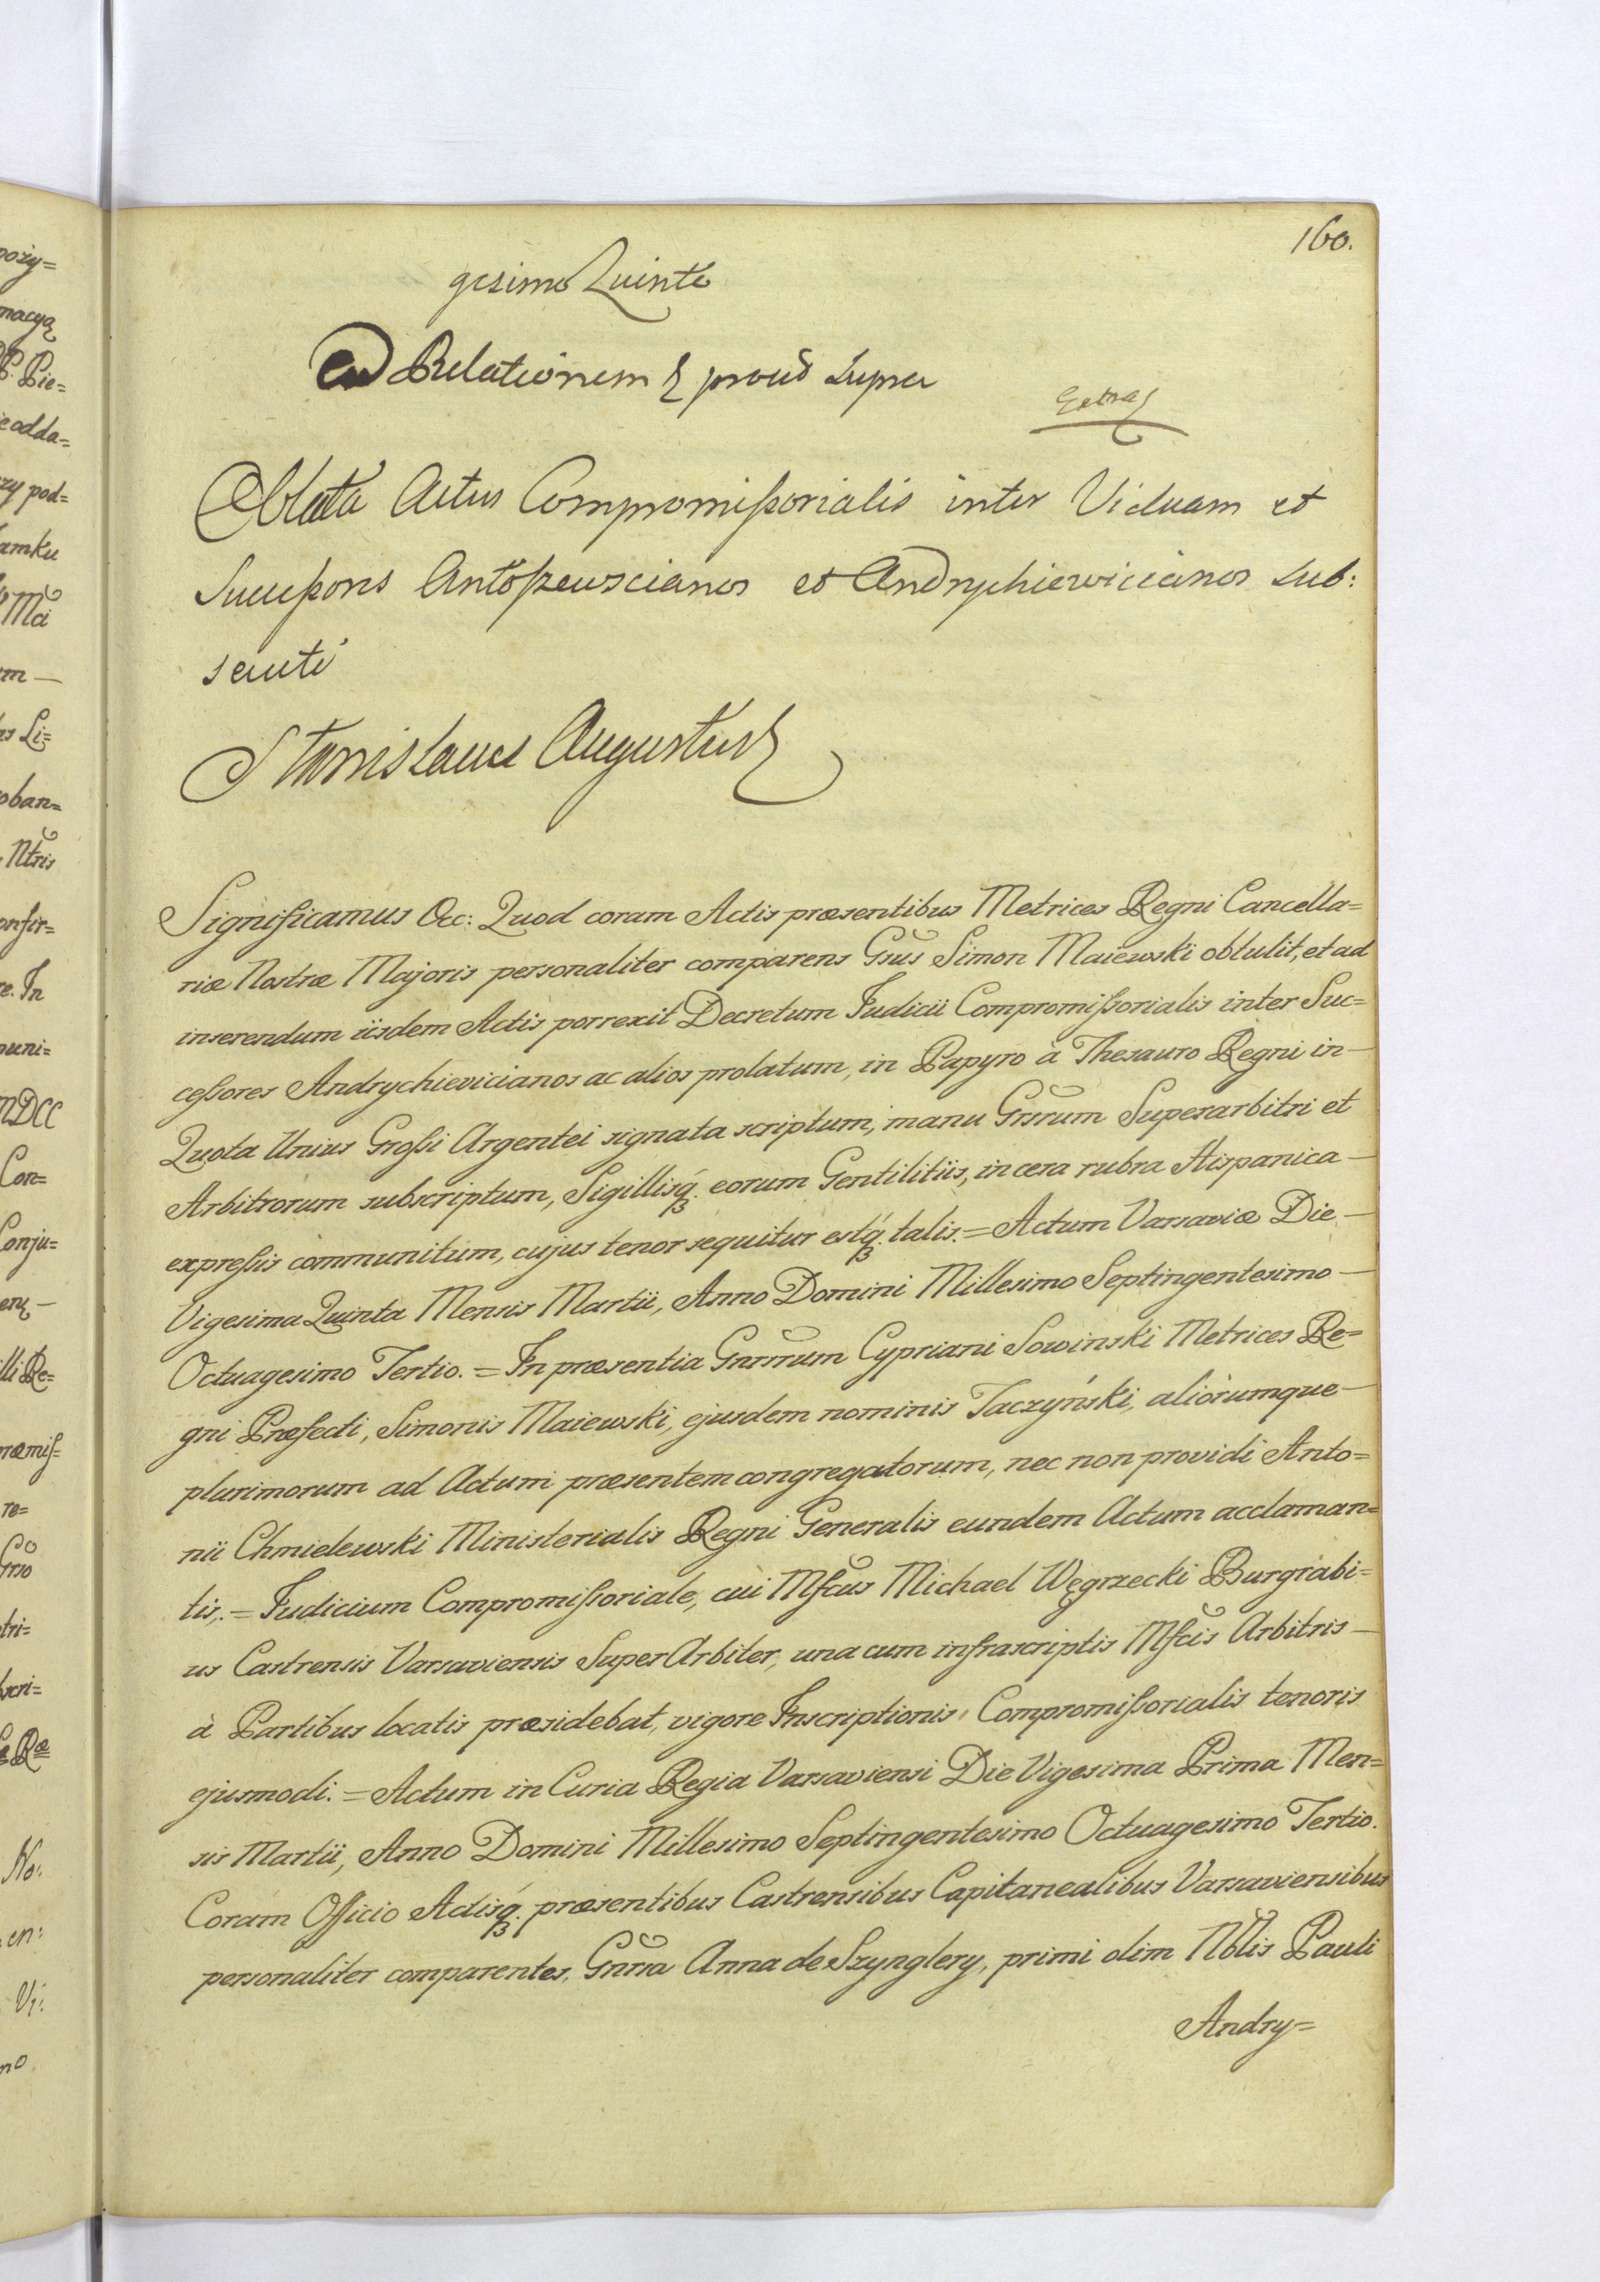 160.
gesimo Quinto
Ad Relationem & prout supra
Extra&
Oblata Actus Compromißorialis inter Viduam et
Succeßores Antoßewscianos et Andrychiewicianos Sub:
secuti
Stanislaus Augustus &
Significamus &c: Quod coram Actis præsentibus Metrices Regni Cancella=
riæ Nostræ Majoris personaliter comparens Gsus Simon Maiewski obtulit, et ad
inserendum iisdem Actis porrexit Decretum Judicii Compromißorialis inter Suc=
ceßores Andrychievicianos ac alios prolatum, in Papyro à Thesauro Regni in—
Quota Unius Großi Argentei signata scriptum, manu Grsrum Superarbitri et
Arbitrorum subscriptum, Sigillisq3. eorum Gentilitiis, in cera rubra Hispanica—
expreßis communitum, cujus tenor sequitur estq3. talis.= Actum Varsaviæ Die—
Vigesima Quinta Mensis Martii, Anno Domini Millesimo Septingentesimo—
Octuagesimo Tertio.= In præsentia Gnrrrum Cypriani Sowinski Metrices Re=
gni Præfecti, Simonis Maiewski, ejusdem nominis Jaczyński, aliorumque—
plurimorum ad Actum præsentem congregatorum, nec non providi Anto=
nii Chmielewski Ministerialis Regni Generalis eundem Actum acclaman=
tis,.= Judicium Compromißoriale, cui Mfcus Michael Węgrzecki Burgrabi=
us Castrensis Varsaviensis SuperArbiter, una cum infrascriptis Mfcis Arbitris—
à Partibus locatis præsidebat, vigore Inscriptionis Compromißorialis tenoris
ejusmodi.= Actum in Curia Regia Varsaviensi Die Vigesima Prima Men=
sis Martii, Anno Domini Millesimo Septingentesimo Octuagesimo Tertio.
Coram Officio Actisq3. præsentibus Castrensibus Capitanealibus Varsaviensibus
personaliter comparentes, Gnrra Anna de Szynglery, primi olim Nblis Pauli
Andry=